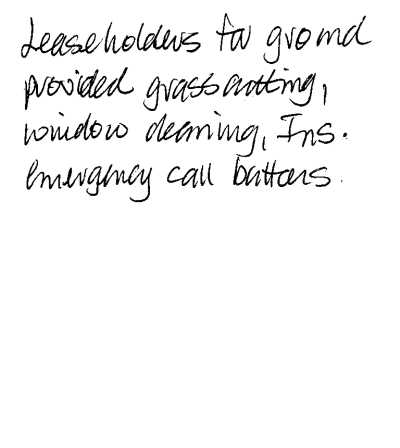 Leaseholders for ground
provided grasscutting,
window cleaning, Ins.
emergency call buttons.